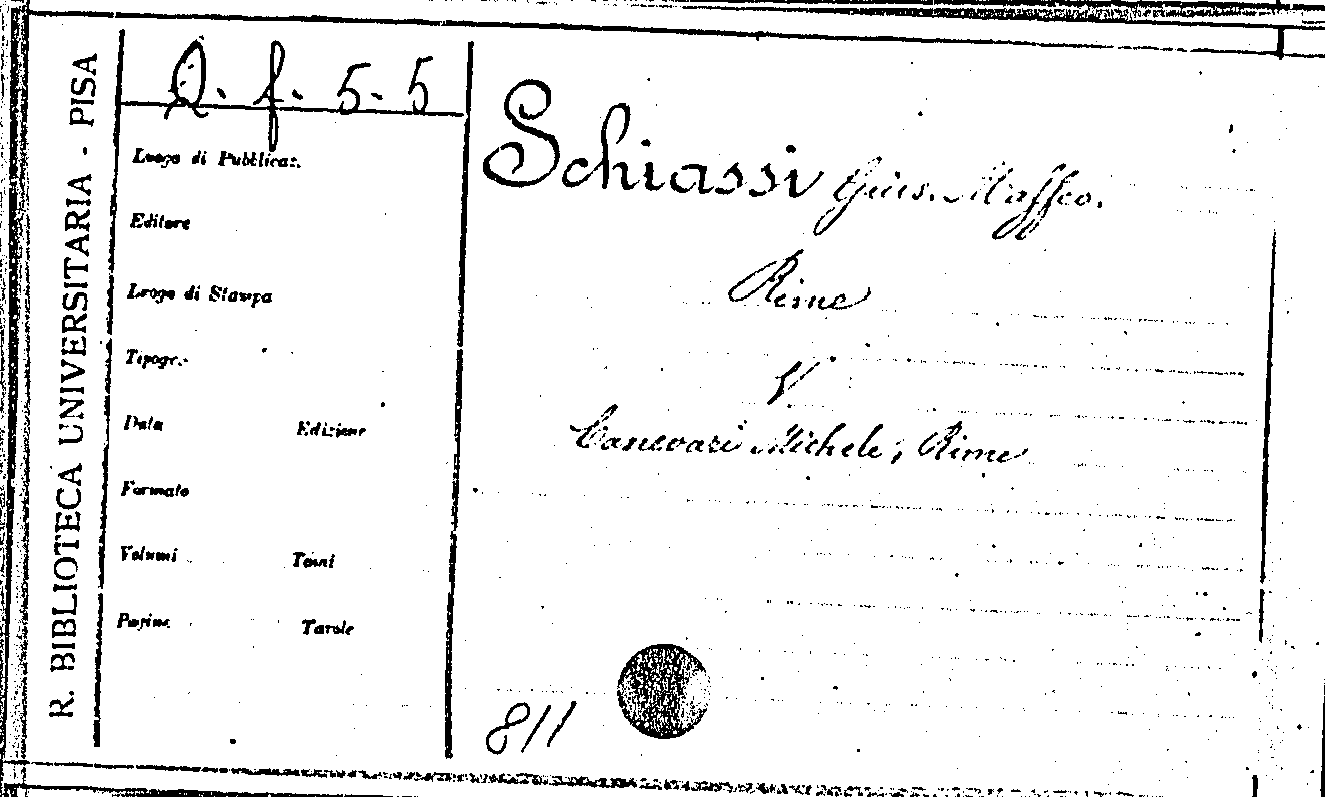 R. BIBLIOTECA UNIVERSITARIA - PISA
Q. f. 5-5
Luogo di Pubblicaz.
Editore
Luogo di Stampa
Tipogr.
Data Edizione
Formato
Volumi Tomi
Pagine Tavole
Schiassi Gius. Maffeo.
Rime
V
Canevari Michele, Rime
811